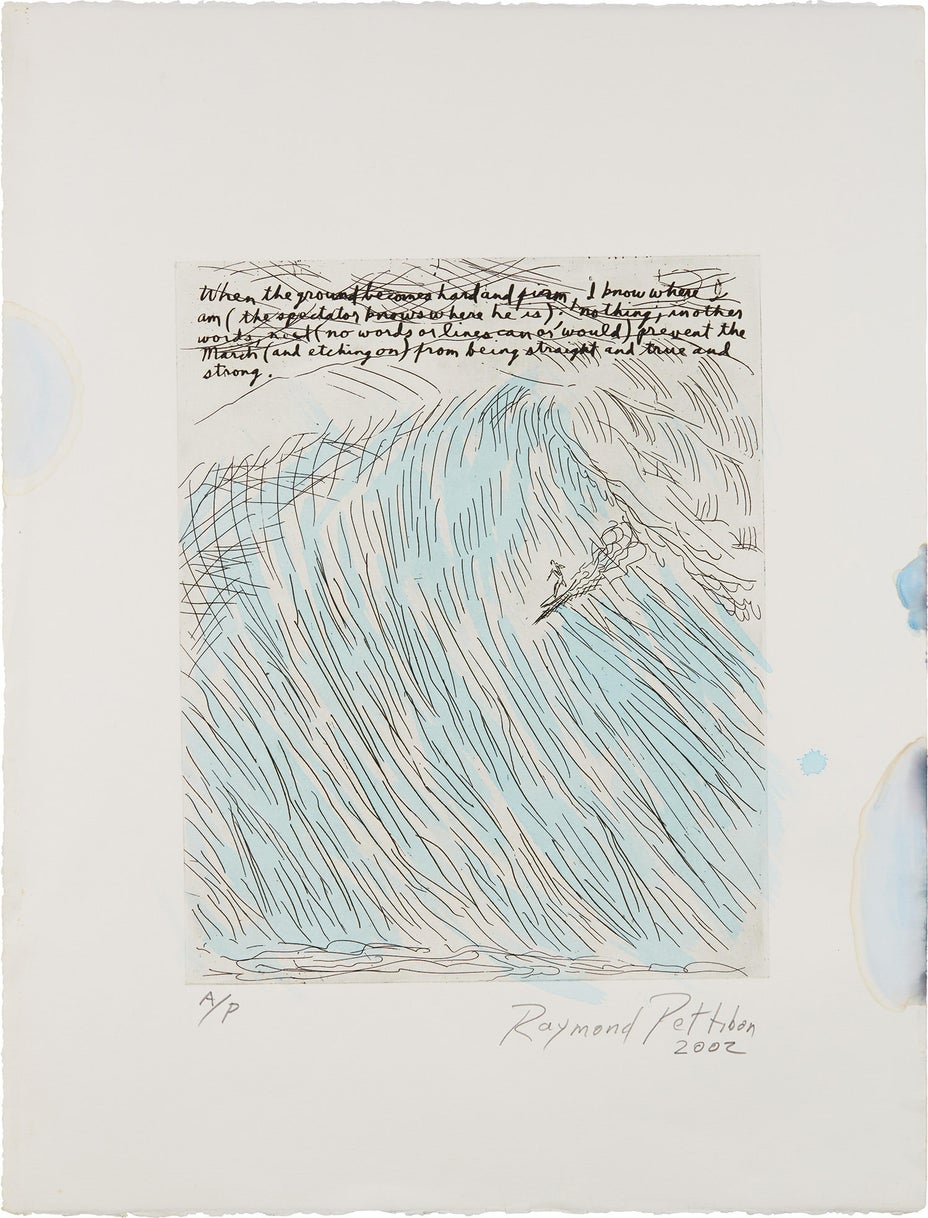 When the ground becomes hard and firm, I know where I
am (the spectator knows where he is): 'nothing, in other
words, (no words or lines can or 'would) prevent the
March (and etching on) from being straight and true and
strong.
A/P
Raymond Pettibon
2002